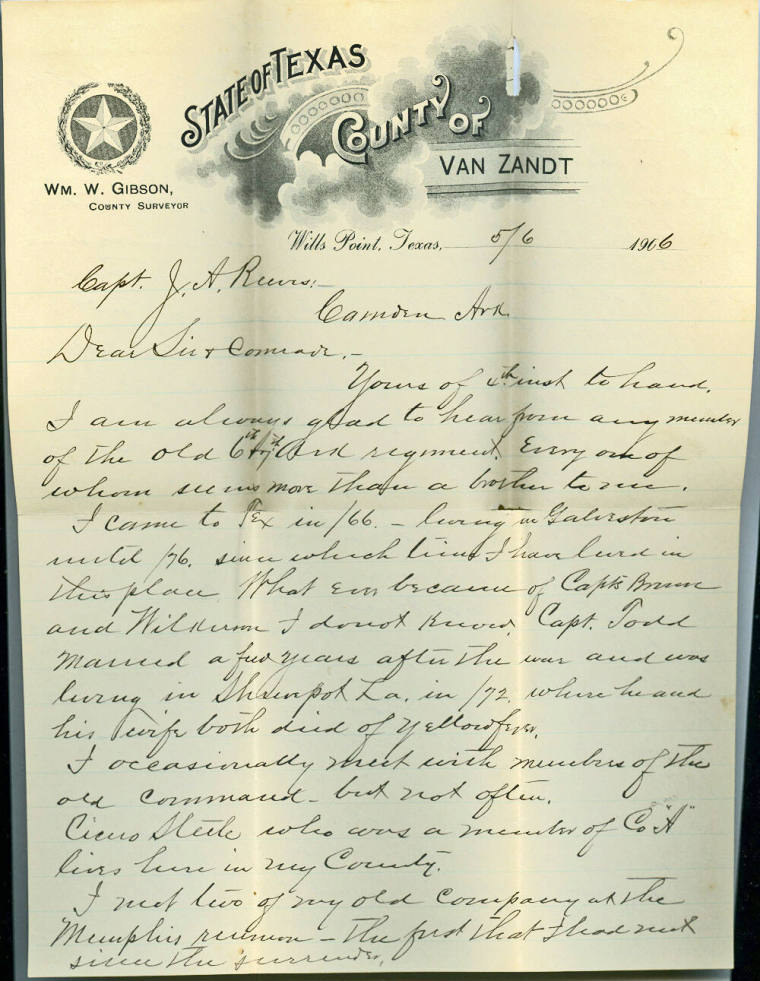 STATE OF TEXAS
COUNTY OF
VAN ZANDT
WM. W. GIBSON,
COUNTY SURVEYOR
Wills Point, Texas, 5/6 1906
Capt. J. A. Reeves:-
Camden Ark.
Dear Sir & Comrade,-
Yours of 4th inst to hand.
I am always glad to hear from any member
of the old 6th & 7th Ark regiment. Every one of
whom seems more than a brother to me.
I came to Tex in /66. - living in Galveston
until /76. since which time I have lived in
this place. What ever became of Capts Brown
and Wilkerson I do not know. Capt. Todd
married a few years after the war and was
living in Shreveport La. in /72. where he and
his wife both died of Yellow fever.
I occasionally meet with members of the
old command - but not often.
Cicero Steele who was a member of Co "A"
lives here in my County.
I met two of my old company at the
Memphis reunion - the first that I had met
since the surrender.